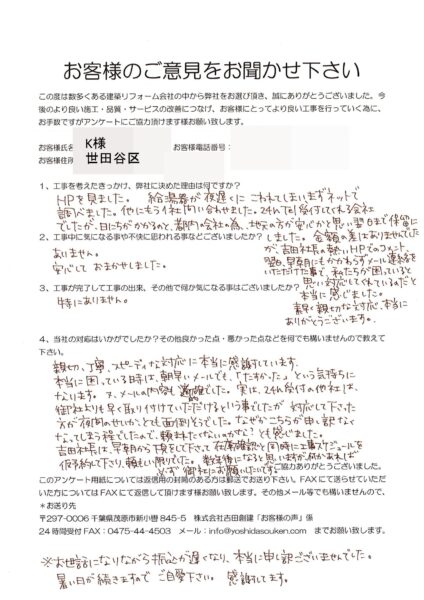 お客様のご意見をお聞かせ下さい
この度は数多くある建築リフォーム会社の中から弊社をお選び頂き、誠にありがとうございました。今
後のより良い施工・品質・サービスの改善につなげ、お客様にとってより良い工事を行っていく為に、
お手数ですがアンケートにご協力頂けます様お願い致します。
お客様氏名 K様 お客様電話番号：
お客様住所 世田谷区
1、工事を考えたきっかけ、弊社に決めた理由は何ですか？
HPを見ました。 給湯器が夜遅くに こわれてしまいまずネットで
調べました。他にもう1社問い合わせました。24h受付してくれる会社
でしたが、日にちがかかるのと、都内の会社の為、地元の方が安心かと思い翌日まで保留に
しました。金額の差はありませんでした
が、吉田社長の熱いHPでのコメント、
翌、早朝にもかかわらずメール連絡を
いただけた事で、私たちが困っていると
思い対応してくれているんだと
本当に感じました。
熱く親切な対応、本当に
ありがとうございます。
2、工事中に気になる事や不快に思われる事などございましたか？
ありません。
安心して おまかせしました。
3、工事が完了して工事の出来、その他で何か気になる事はございましたか？
特にありません。
4、当社の対応はいかがでしたか？その他良かった点・悪かった点などを何でも構いませんので教えて
下さい。
親切、丁寧、スピーディな対応に本当に感謝しています。
本当に困っている時は、朝早いメールでも、「たすかった」という気持ちに
なります。又、メールの内容も適確でした。実は、24h受付の他社は、
御社よりも早く取り付けていただけるという事でしたが 対応して下さった
方が夜間のせいかとても面倒そうでした。なぜかこちらが申し訳なく
なってしまう程でしたので、頼まれたくないのかな？とも思いました。
吉田社長は、早朝から下見をして下さって 在庫確認と同時に工事スケジュールを
仮予約して下さり、頼もしい限りでした。数年後になると思いますが何かあれば
必ず御社にお願いしたいです。
ご協力ありがとうございました。
このアンケート用紙については返信用の封筒のある方は郵送でお送り下さい。FAXにて送らせていただ
いた方についてはFAXにて返信して頂けます様お願い致します。その他メール等でも構いませんので、
＊お送り先
〒297-0006 千葉県茂原市新小轡845-5 株式会社吉田創建「お客様の声」係
24時間受付FAX：0475-44-4503 メール：info@yoshidasouken.com までお願い致します。
※お世話になりながら振込が遅くなり、本当に申し訳ございませんでした。
暑い日が続きますで ご自愛下さい。 感謝してます。